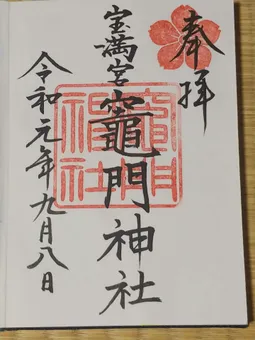 奉拝
宝満宮
竈門神社
令和元年九月八日
竈門神社